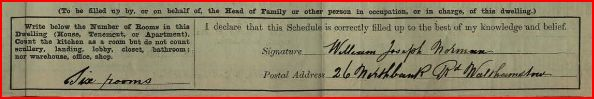 (To be filled up by, or on behalf of, the Head of Family or other person in occupation, or in charge, of this dwelling.)
Write below the Number of Rooms in this
Dwelling (House, Tenement, or Apartment).
Count the kitchen as a room but do not count
scullery, landing, lobby, closet, bathroom;
nor warehouse, office, shop.
Six rooms
I declare that this Schedule is correctly filled up to the best of my knowledge and belief.
Signature William Joseph Norman
Postal Address 26 Northbank Rd Walthamstow